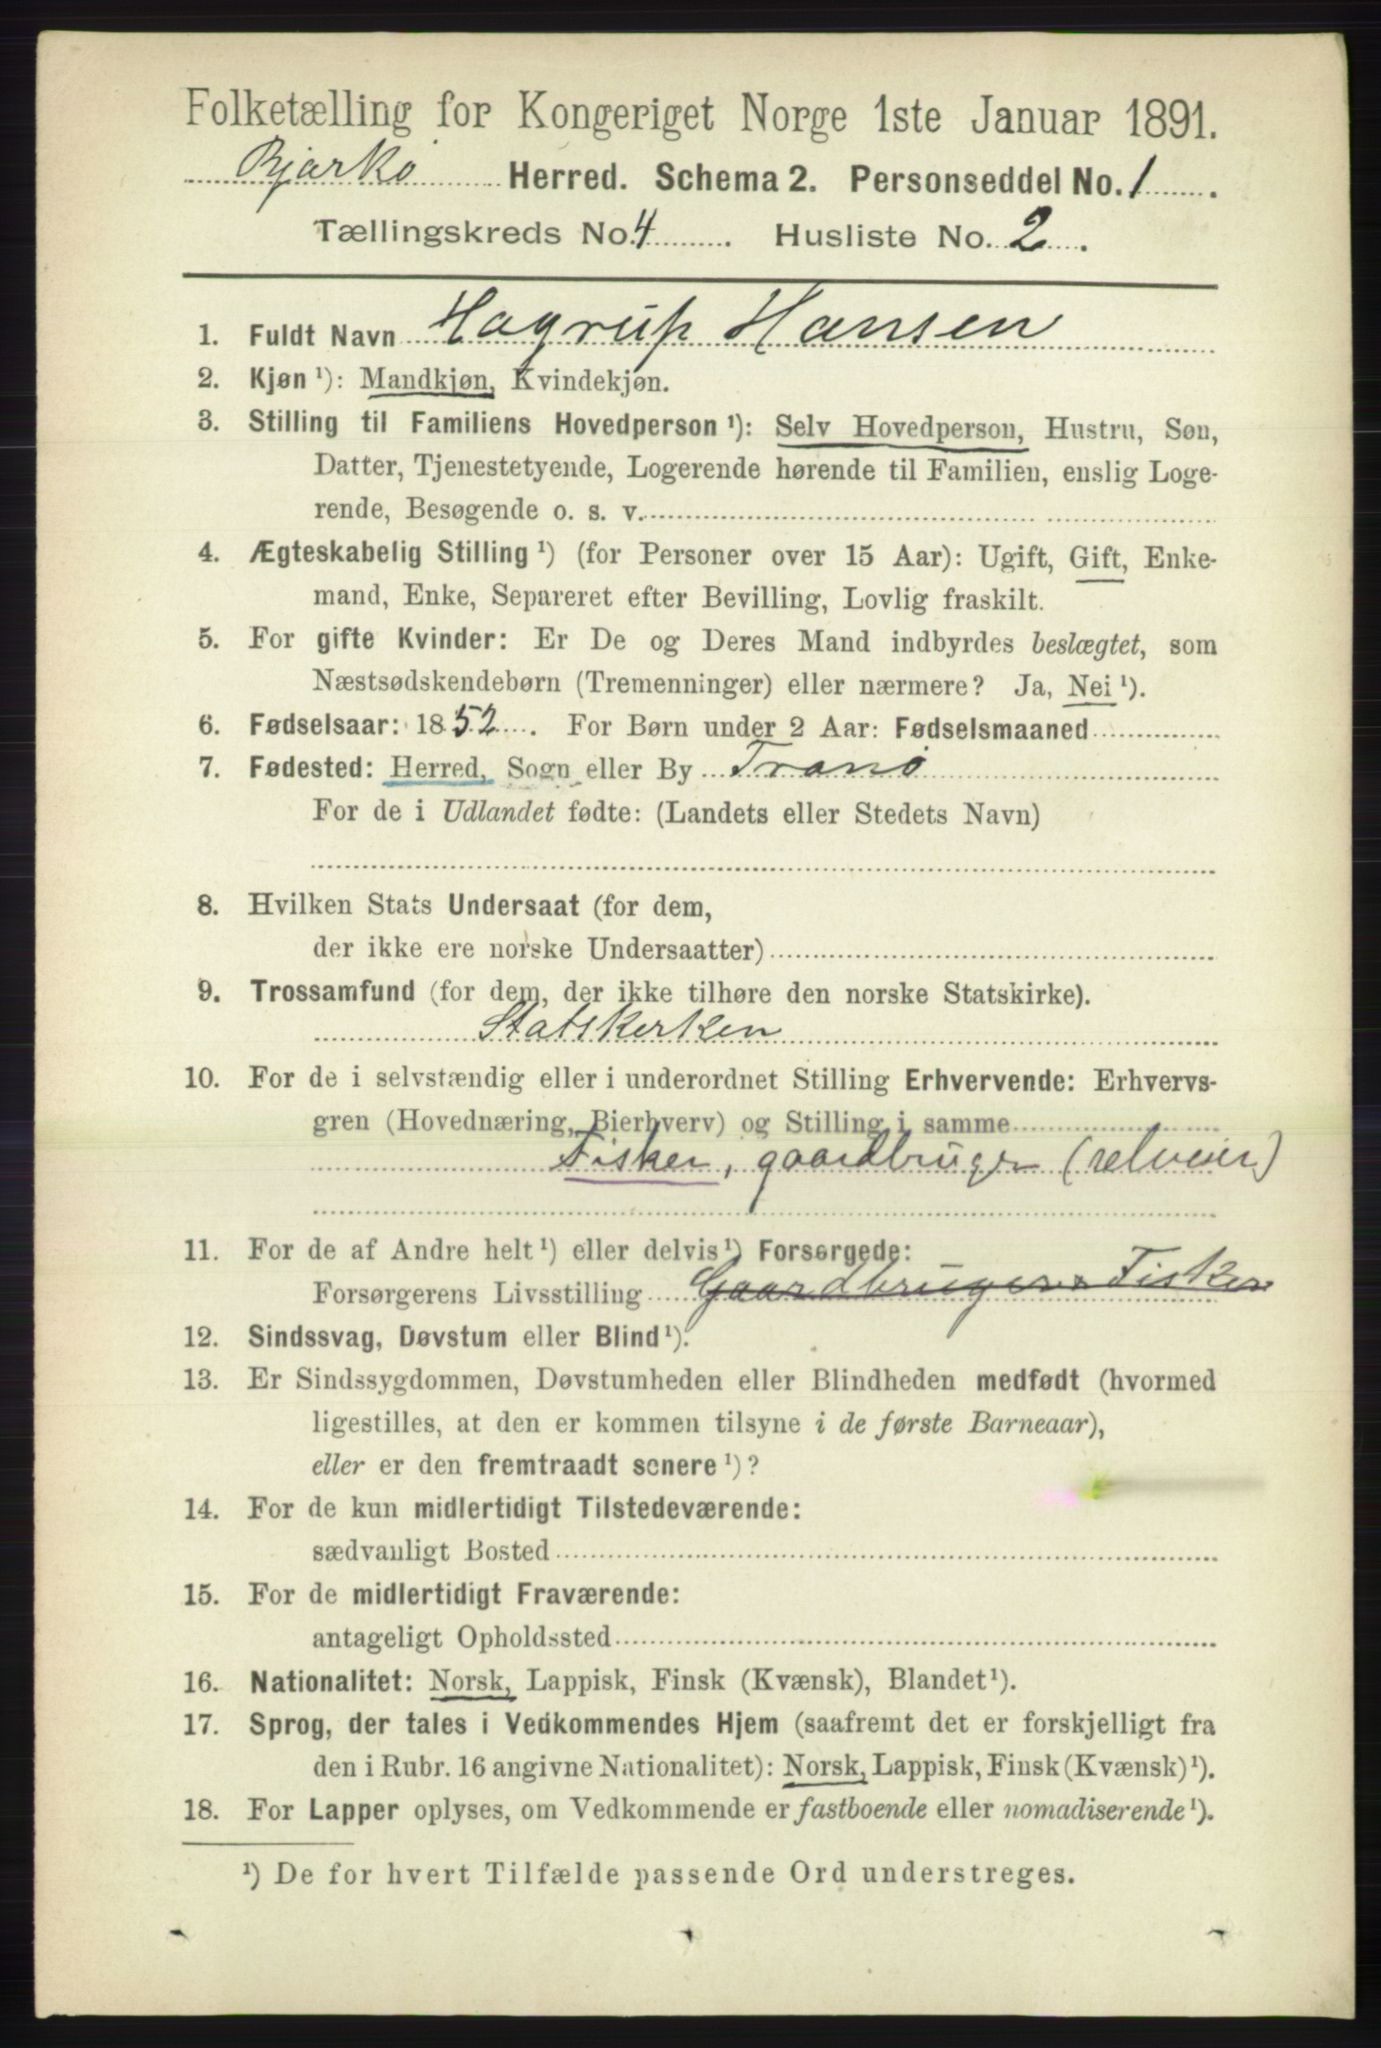 Folketælling for Kongeriget Norge 1ste Januar 1891.
Bjarkø Herred. Schema 2. Personseddel No. 1.
Tællingskreds No. 4. Husliste No. 2.
1. Fuldt Navn Hagrup Hansen
2. Kjøn ¹): Mandkjøn, Kvindekjøn.
3. Stilling til Familiens Hovedperson ¹): Selv Hovedperson, Hustru, Søn,
Datter, Tjenestetyende, Logerende hørende til Familien, enslig Loge-
rende, Besøgende o. s. v.
4. Ægteskabelig Stilling ¹) (for Personer over 15 Aar): Ugift, Gift, Enke-
mand, Enke, Separeret efter Bevilling, Lovlig fraskilt.
5. For gifte Kvinder: Er De og Deres Mand indbyrdes beslægtet, som
Næstsødskendebørn (Tremenninger) eller nærmere? Ja, Nei ¹).
6. Fødselsaar: 1852. For Børn under 2 Aar: Fødselsmaaned
7. Fødested: Herred, Sogn eller By Tranø
For de i Udlandet fødte: (Landets eller Stedets Navn)
8. Hvilken Stats Undersaat (for dem,
der ikke ere norske Undersaatter)
9. Trossamfund (for dem, der ikke tilhøre den norske Statskirke).
Statskerken
10. For de i selvstændig eller i underordnet Stilling Erhvervende: Erhvervs-
gren (Hovednæring, Bierhverv) og Stilling i samme
Fisker, gaardbruger (selveier)
11. For de af Andre helt ¹) eller delvis ¹) Forsørgede:
Forsørgerens Livsstilling Gaardbruger & Fisker
12. Sindssvag, Døvstum eller Blind ¹).
13. Er Sindssygdommen, Døvstumheden eller Blindheden medfødt (hvormed
ligestilles, at den er kommen tilsyne i de første Barneaar),
eller er den fremtraadt senere ¹)?
14. For de kun midlertidigt Tilstedeværende:
sædvanligt Bosted
15. For de midlertidigt Fraværende:
antageligt Opholdssted
16. Nationalitet: Norsk, Lappisk, Finsk (Kvænsk), Blandet ¹).
17. Sprog, der tales i Vedkommendes Hjem (saafremt det er forskjelligt fra
den i Rubr. 16 angivne Nationalitet): Norsk, Lappisk, Finsk (Kvænsk) ¹).
18. For Lapper oplyses, om Vedkommende er fastboende eller nomadiserende ¹).
¹) De for hvert Tilfælde passende Ord understreges.